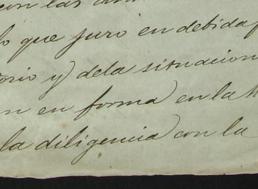 con las
lo que juro en debida
torio y dela situacion
en forma en la
la diligencia con la